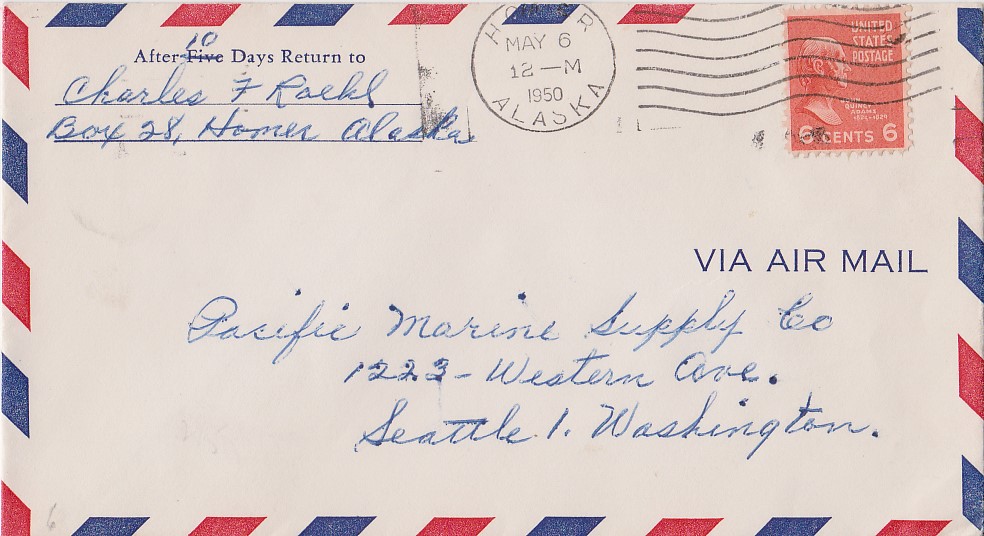 10
After Five Days Return to
Charles F Raekl
Box 28, Homer Alaska
HOMER
MAY 6
12—M
1950
ALASKA
UNITED
STATES
POSTAGE
JOHN
QUINCY
ADAMS
1825-1829
6 CENTS 6
VIA AIR MAIL
Pacific Marine Supply Co
1223- Western Ave.
Seattle 1. Washington.
6